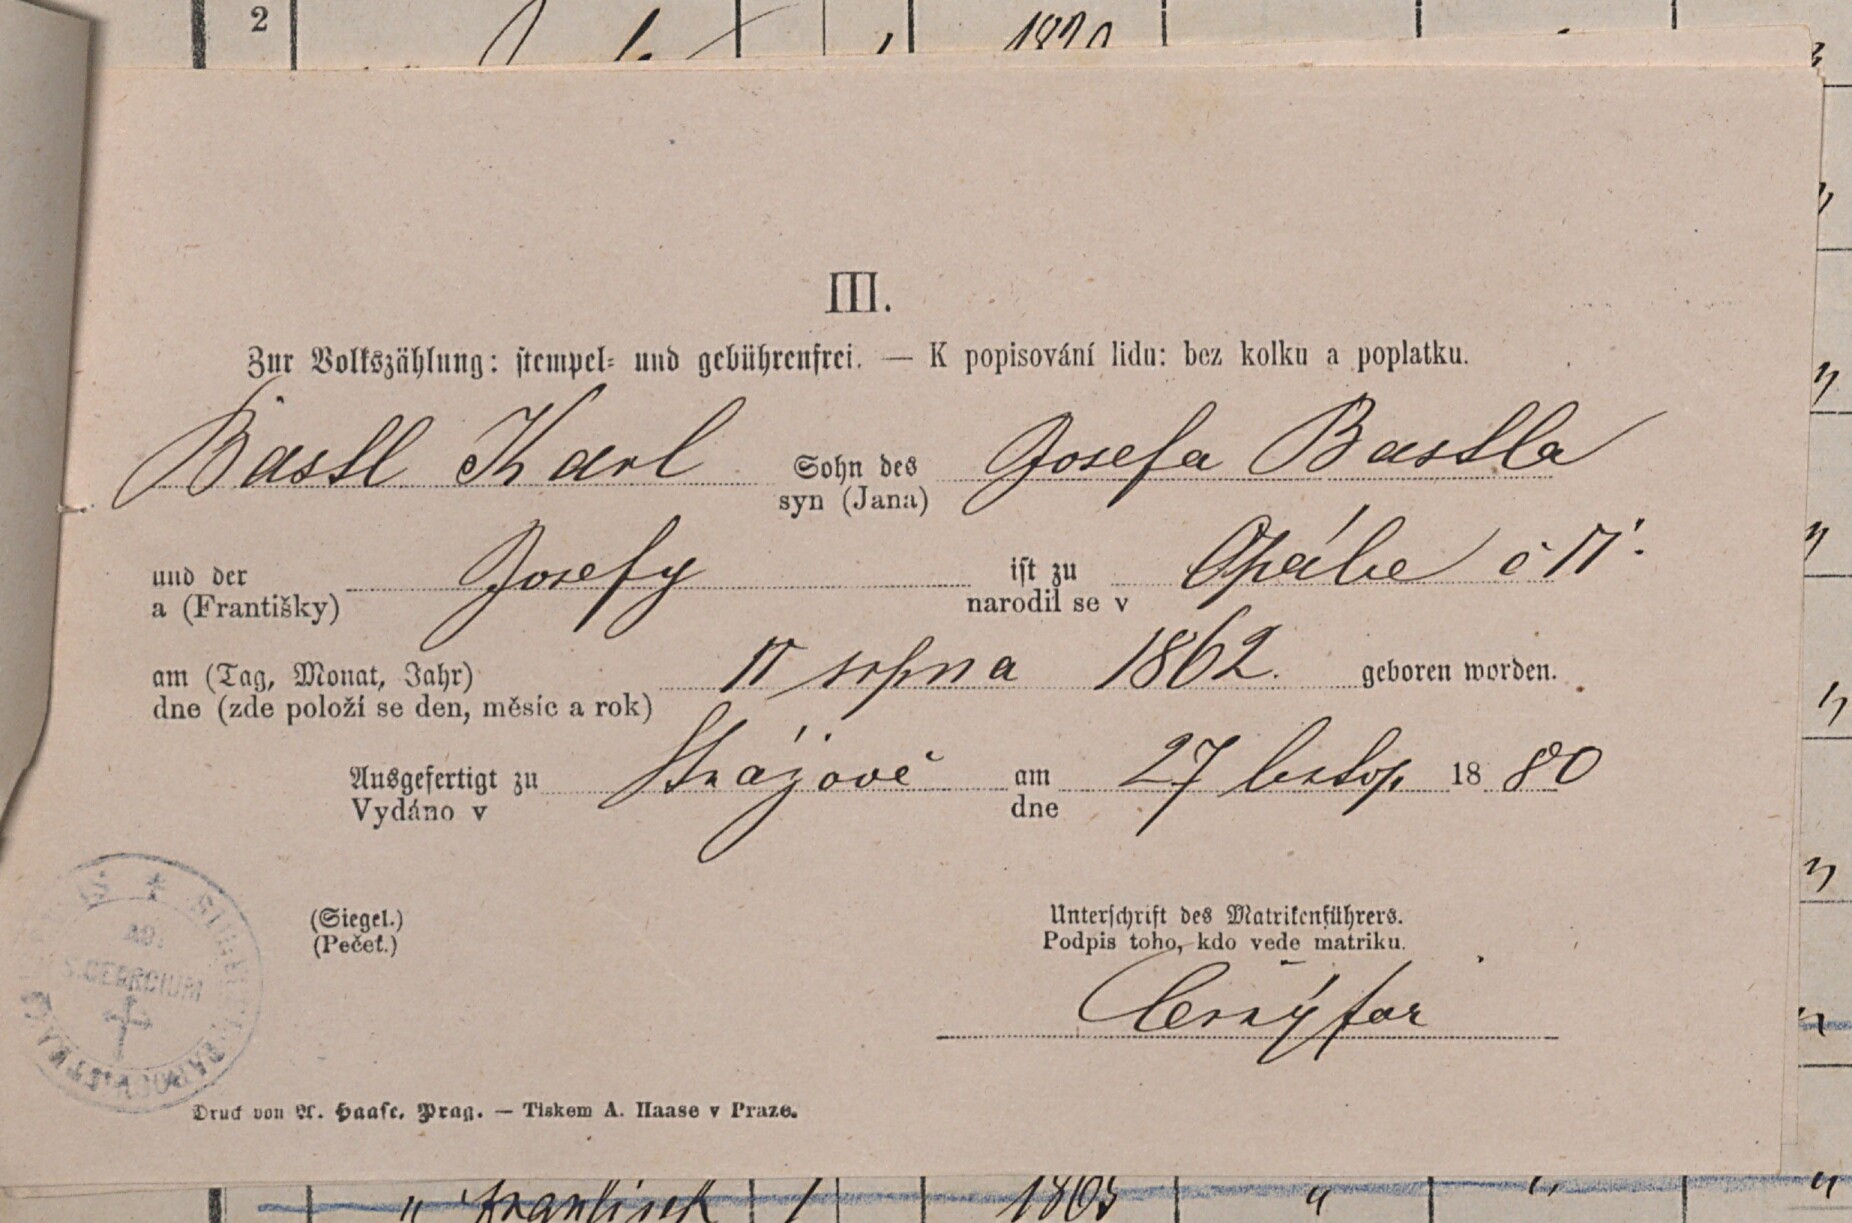 2
III.
Zur Volkszählung: stempel- und gebührenfrei. — K popisování lidu: bez kolku a poplatku.
Bastl Karl Sohn des Josefa Bastla
syn (Jana)
und der Josefy ist zu Opálce č 17.
a (Františky) narodil se v
am (Tag, Monat, Jahr) 17 srpna 1862. geboren worden.
dne (zde položí se den, měsíc a rok)
Ausgefertigt zu Strážově am 27 listop. 18 80
Vydáno v dne
(Siegel.) Unterschrift des Matrikenführers.
(Pečeť.) Podpis toho, kdo vede matriku.
AD.
S. GEORGIUM
Černý far
Druck von A. Haase, Prag. — Tiskem A. Haase v Praze.
" František 1 1865 " " "